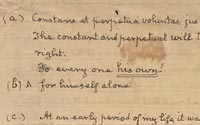 (a) Constans et perpetua voluntas, jus
The constant and perpetual will t
right.
To every one his own!
(b) A for himself alone
(c.) At an early period of my life it wa